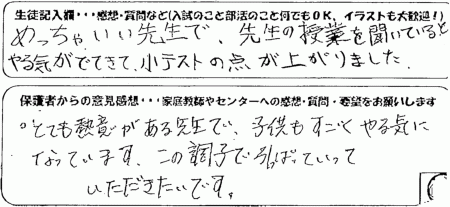 生徒記入欄・・・感想・質問など(入試のこと部活のこと何でもOK、イラストも大歓迎!)
めっちゃいい先生で、先生の授業を聞いていると
やる気がでてきて、小テストの点が上がりました。
保護者からの意見感想・・・家庭教師やセンターへの感想・質問・要望をお願いします
とても熱意がある先生で、子供もすごくやる気に
なっています。この調子で引っぱっていって
いただきたいです。